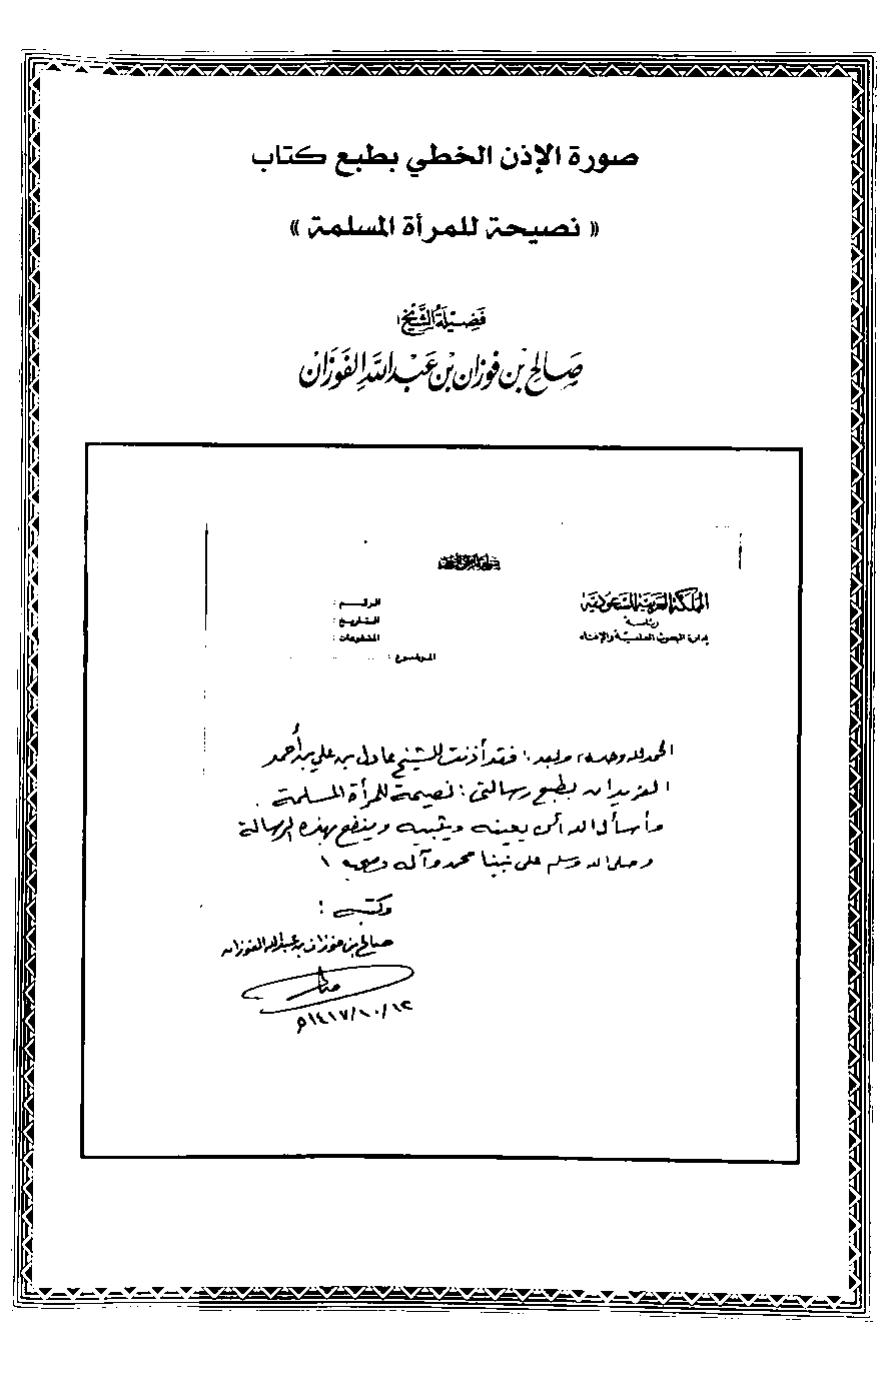 صورة الإذن الخطي بطبع كتاب
« نصيحة للمرأة المسلمة »
فَضِيلَةُ الشَّيْخ:
صَالِح بْن فَوْزَان بْن عَبْدِ اللهِ الفَوْزَان
المملكة العربية السعودية
رئاسة
إدارة البحوث العلمية والإفتاء
الرقم :
التاريخ :
المشفوعات :
الموضوع :
الحمد لله وحده، وبعد: فقد أذنت للشيخ عادل بن علي بن أحمد
الفريدان بطبع رسالتي: نصيحة للمرأة المسلمة .
وأسأل الله أن يعينه ويثيبه وينفع بهذه الرسالة
وصلى الله وسلم على نبينا محمد وآله وصحبه
وكتبه :
صالح بن فوزان بن عبدالله الفوزان
١٤١٧/١٠/١٢هـ